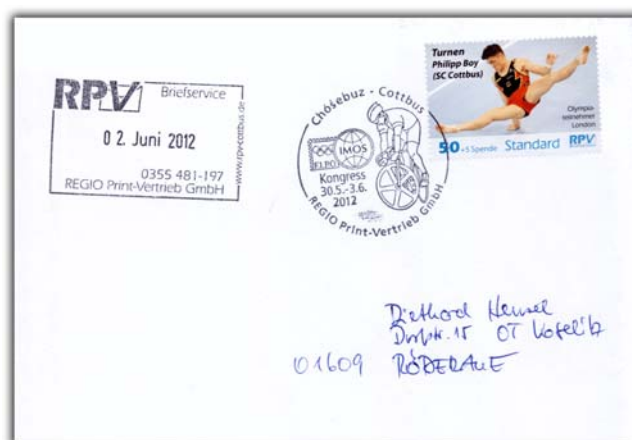 RPV Briefservice
02. Juni 2012
www.rpv-cottbus.de
0355 481-197
REGIO Print-Vertrieb GmbH
Chóśebuz - Cottbus
IMOS
Kongress
30.5.-3.6.
2012
REGIO Print-Vertrieb GmbH
Turnen
Philipp Boy
(SC Cottbus)
Olympia-
teilnehmer
London
50 +5 Spende Standard RPV
Diethard Hensel
Dorfstr. 15 OT Koselitz
01609 RÖDERAUE